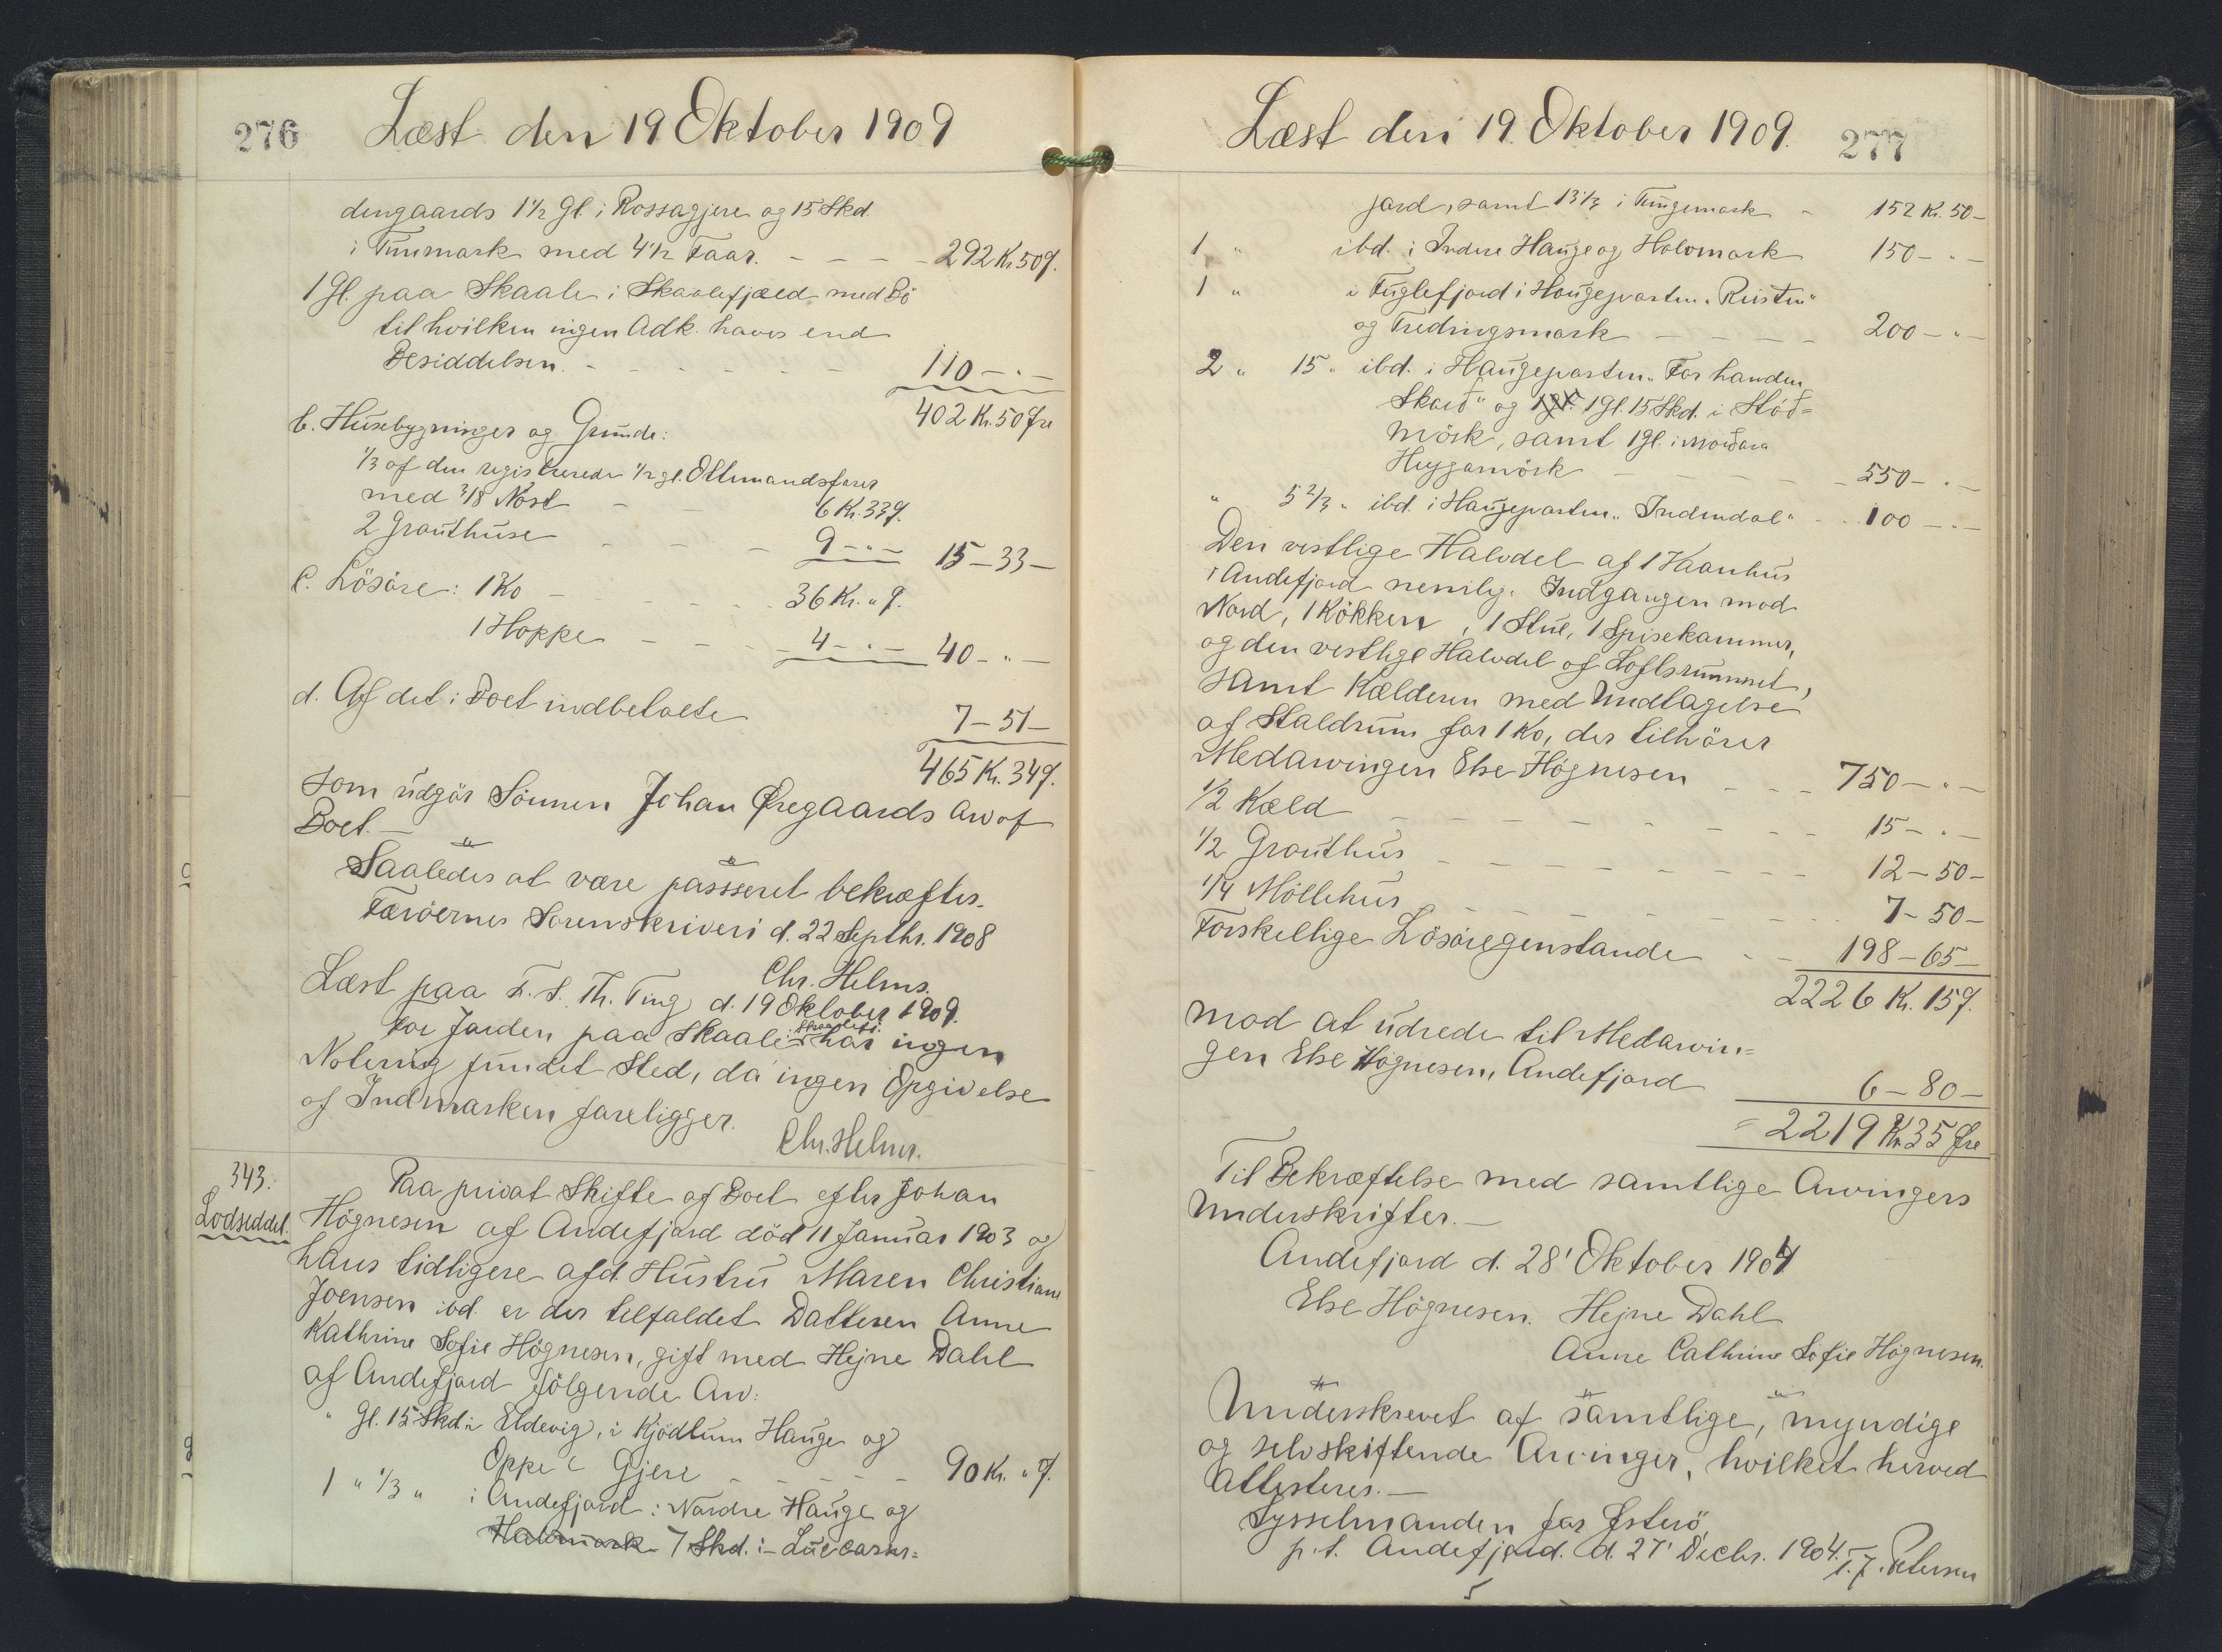 276 Læst den 19 Oktober 1909
dengaards 1 1/2 Gl. i Rossagjere og 15 Skd.
i Tunmark med 4 1/2 Faar. - - - - 292 Kr. 50 Ø.
1 Gl. paa Skaale i Skaalefjæld med Bö
til hvilken ingen Adk. haves end
Besiddelsen. - - - - - - 110 - " -
402 Kr. 50 Øre
b. Husebygninger og Grunde:
1/3 af den registrerede 1/2 gl. Ottemandsfarer
med 3/8 Nost - - 6 Kr. 33 Ø.
2 Grouthuse - - - 9 - " - 15 - 33 -
c. Lösöre: 1 Ko - - - - 36 Kr. " Ø.
1 Hoppe - - - 4 - " - 40 - " -
d. Af det i Boet indbetalte 7 - 51 -
465 Kr. 34 Ø.
som udgör Sönnen Johan Øregaards Arv af
Boet. -
Saaledes at være passseret bekræftes.
Færöernes Sorenskriveri d. 22 Septbr. 1908
Chr. Helms.
Læst paa F. S. Th. Ting d. 19 Oktober 1909.
For Jorden paa Skaale i Skaalefj. har ingen
Notering fundet Sted, da ingen Opgivelse
af Indmarken foreligger.
Chr. Helms.
343.
Lodseddel.
Paa privat Skifte af Boet efter Johan
Högnesen af Andefjord död 11 Januar 1903 og
hans tidligere afd. Hustru Maren Christiane
Joensen ibd. er der tilfaldet Datteren Anne
Kathrine Sofie Högnesen, gift med Hejne Dahl
af Andefjord fölgende Arv:
" Gl. 15 Skd. i Eldevig, i Kjödlum Hauge og
Oppe i Gjere - - - - - 90 Kr. " Ø.
1 " 1/3 " i Andefjord: Nordre Hauge og
Halvmark 7 Skd. i
Læst den 19. Oktober 1909. 277
jord, samt 13 1/3 i Tungemark - 152 Kr. 50 -
1 " ibd. i Indere Hauge og Halvmark 150 - " -
1 " i Fuglefjord i Haugeparten "Ristin"
og Tredingsmark - - - - 200 - " -
2 " 15 " ibd. i Haugeparten "For handen
Skard" og 1 Gl. 15 Skd. i Stöd=
mörk, samt 1 Gl. i
Heygamörk - - - - 550 - " -
" 5 2/3 " ibd. i Haugeparten "Indendal" - 100 - " -
Den vestlige Halvdel af 1 Vaanhus
i Andefjord nemlig: Indgangen mod
Nord, 1 Kökken, 1 Stue, 1 Spisekammer,
og den vestlige Halvdel af Loftsrummet,
samt Kælderen med Undtagelse
af Staldrum for 1 Ko, der tilhörer
Medarvingen Else Högnesen - - - 750 - " -
1/2 Kæld - - - - - - - 15 - " -
1/2 Grouthus - - - - - - - 12 - 50 -
1/4 Möllehus - - - - - - - 7 - 50 -
Forskellige Lösöregenstande - - 198 - 65 -
2226 Kr. 15 Ø.
mod at udrede til Medarvin=
gen Else Högnesen, Andefjord 6 - 80 -
= 2219 Kr. 35 Øre
Til Bekræftelse med samtlige Arvingers
Underskrifter. -
Andefjord d. 28' Oktober 1904
Else Högnesen. Hejne Dahl
Anne Cathrine Sofie Högnesen.
Underskrevet af samtlige, myndige
og selvskiftende Arvinger, hvilket herved
attesteres. -
Sysselmanden for Østerö,
p. t. Andefjord. d. 27' Decbr. 1904. Petersen
5